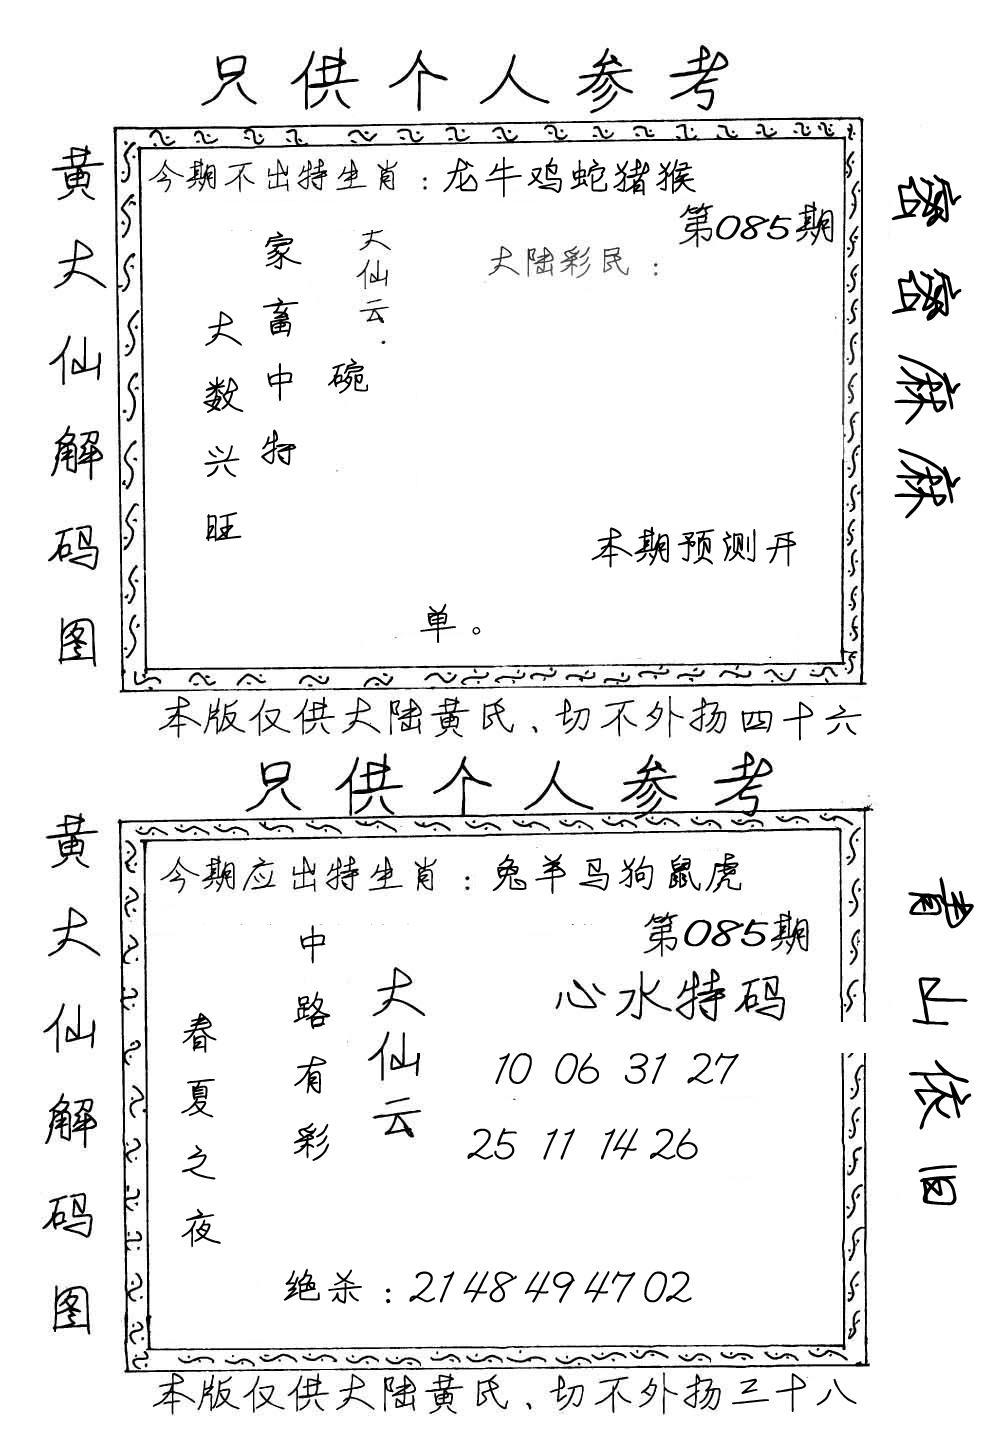 只供个人参考
黄大仙解码图
今期不出特生肖：龙牛鸡蛇猪猴
第085期
大陆彩民：
大仙云．
碗
家畜中特
大数兴旺
本期预测开
单。
密密麻麻
本版仅供大陆黄氏、切不外扬四十六
只供个人参考
黄大仙解码图
今期应出特生肖：兔羊马狗鼠虎
第085期
心水特码
10 06 31 27
25 11 14 26
大仙云
中路有彩
春夏之夜
绝杀：21 48 49 47 02
青山依旧
本版仅供大陆黄氏、切不外扬三十八